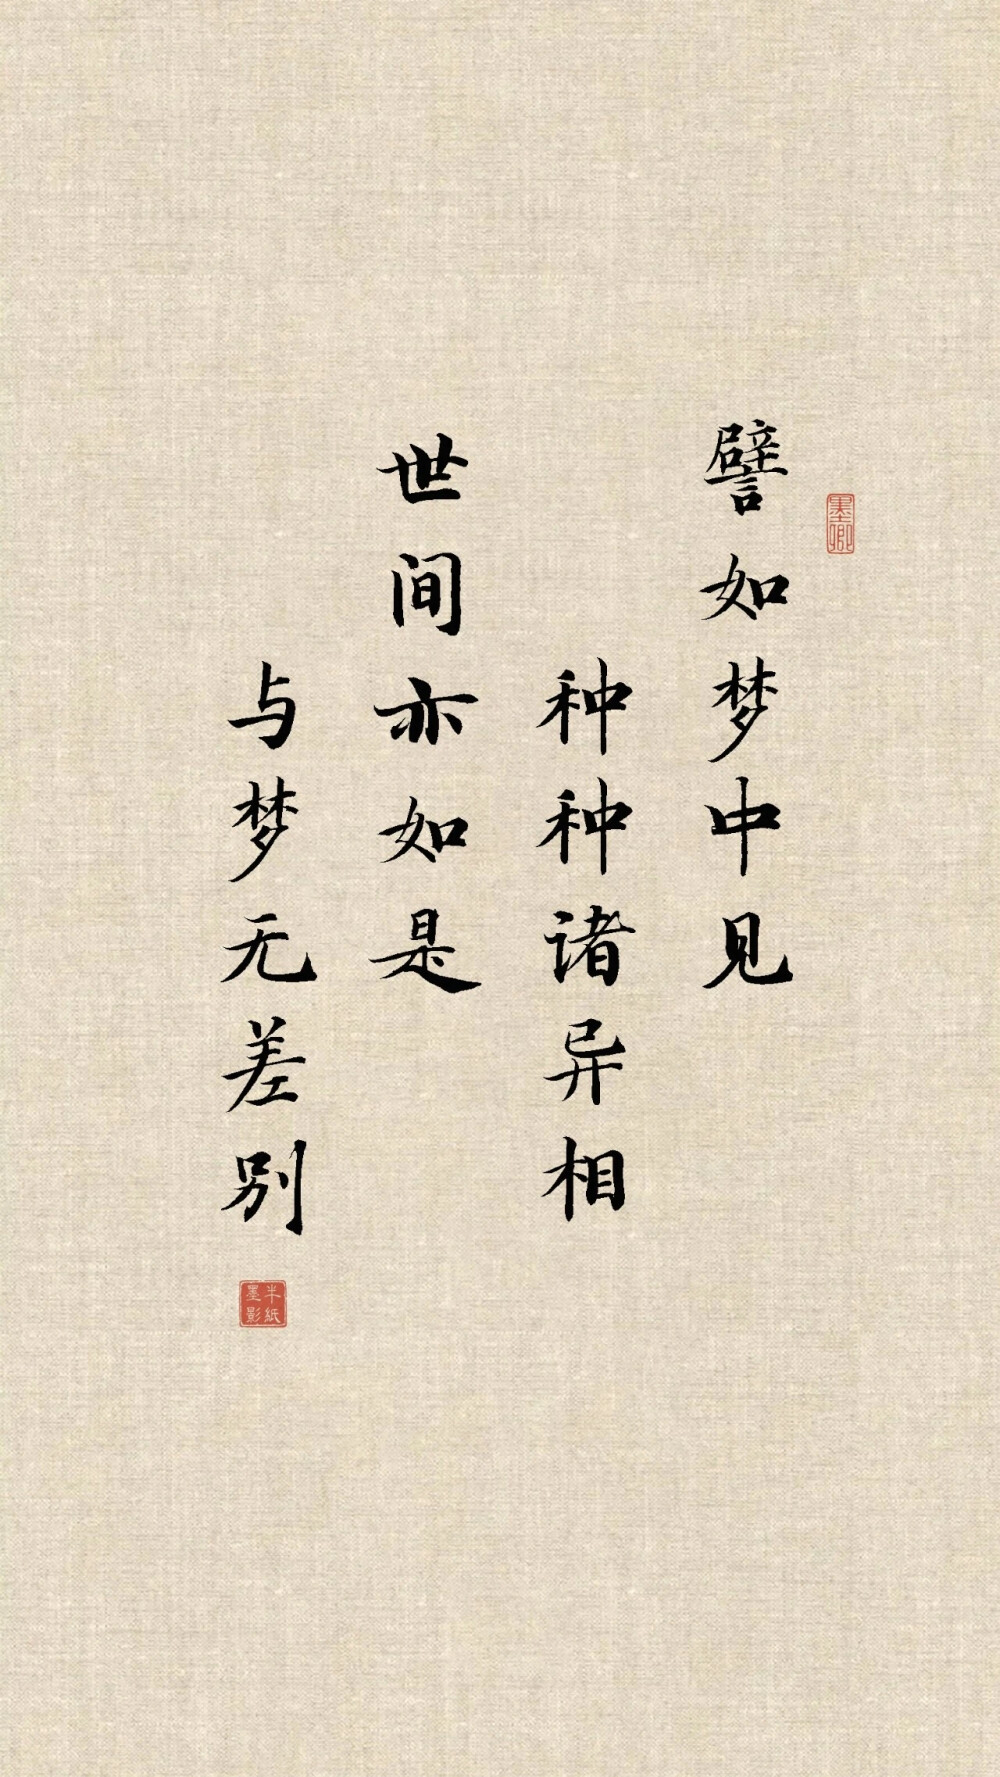 譬如梦中见
种种诸异相
世间亦如是
与梦无差别
墨卿
半纸
墨影